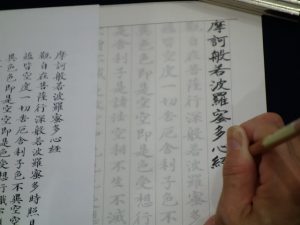 摩訶般若波羅蜜多心經
觀自在菩薩行深般若波
蘊皆空度一切苦厄舍利子
異色色即是空空即是色受想行
舍利子是諸法空相不生不滅
摩訶般若波羅蜜多心經
觀自在菩薩行深般若波羅蜜多時照見
蘊皆空度一切苦厄舍利子色不異空
異色色即是空空即是色受想行識